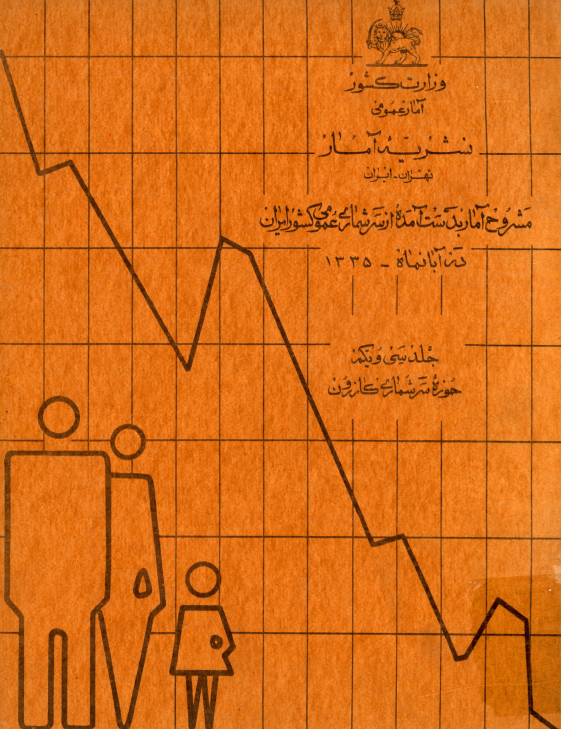 وزارت کشور
آمار عمومی
نشریهٔ آمار
تهران - ایران
مشروح آمار بدست آمده از سرشماری عمومی کشور ایران
در آبانماه - ۱۳۳۵
جلد سی و یکم
حوزهٔ سرشماری کازرون